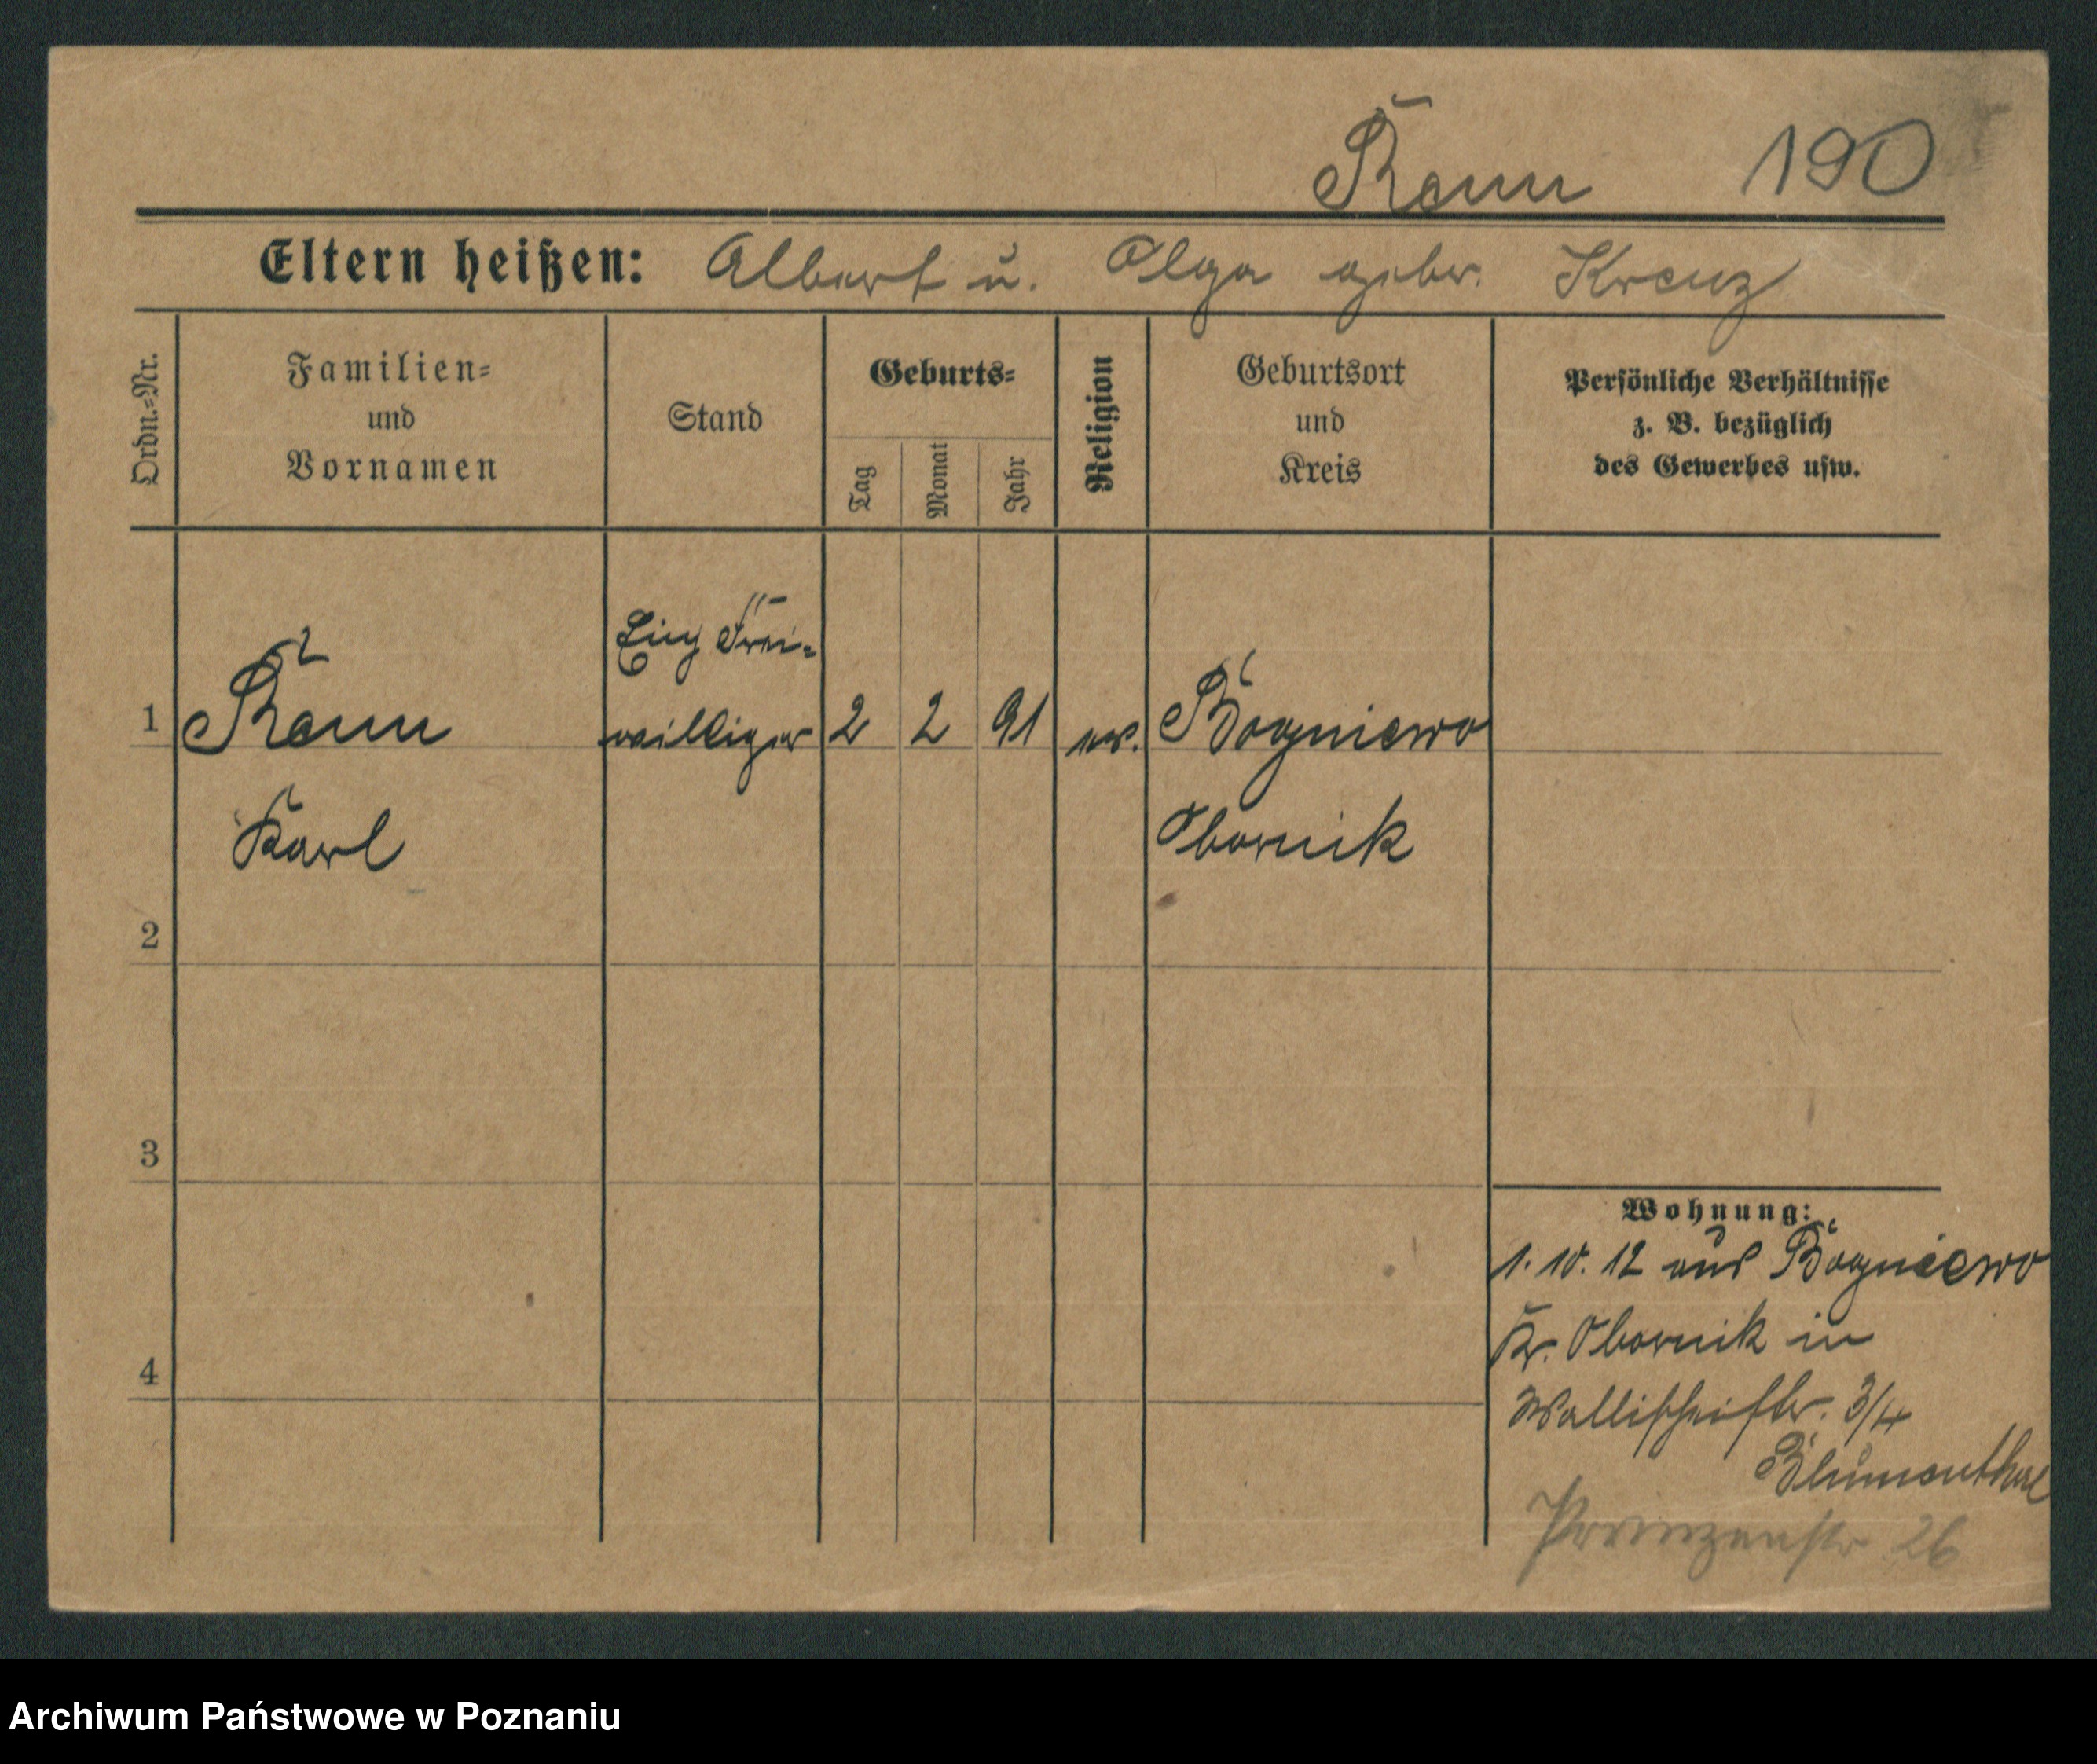 Ramm 190
Eltern heißen: Albert u. Olga gebor. Krenz
Ordn.-Nr.
Familien-
und
Vornamen
Stand
Geburts-
Tag
Monat
Jahr
Religion
Geburtsort
und
Kreis
Persönliche Verhältnisse
z. B. bezüglich
des Gewerbes usw.
Einj Frei-
1 williger 2 2 91 ev. Bogniewo
Karl Obornik
2
3
4
Wohnung:
1. 10. 12 aus Bogniewo
Kr. Obornik in
Wallischeistr. 3/4
Blumenthal
Prinzenstr 26
Archiwum Państwowe w Poznaniu